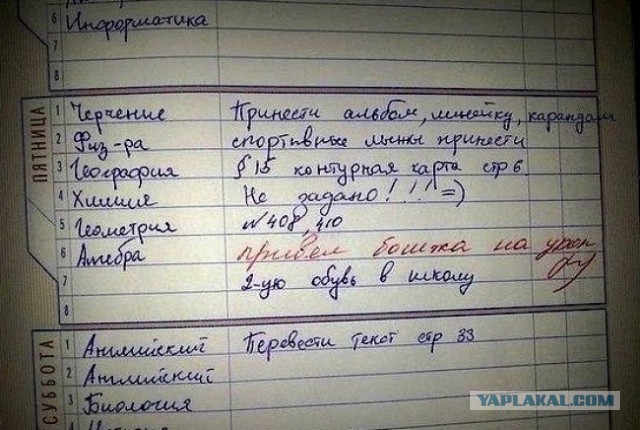 6 Информатика
7
8
ПЯТНИЦА
1 Черчение Принести альбом, линейку, карандаш
2 Физ-ра спортивные лыжи принести
3 География § 15 контурная карта стр 6
4 Химия Не задано!!!! =)
5 Геометрия №408, 410
6 Алгебра привел бомжа на урок
7 2-ую обувь в школу
8
СУББОТА
1 Английский Перевести текст стр 33
2 Английский
3 Биология
4
YAPLAKAL.COM